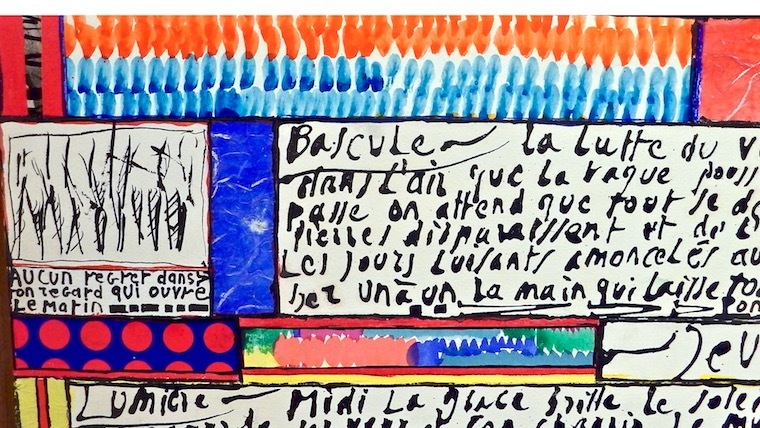 Bascule la lutte du v
dans l'air que la vague pouss
passe on attend que tout se d
disparaissent et de
Les jours luisants amoncelés au
un à un la main qui laisse to
AUCUN regret dans
ton regard qui ouvre
Le Matin
Je v
Lumière Midi La glace brille Le solei